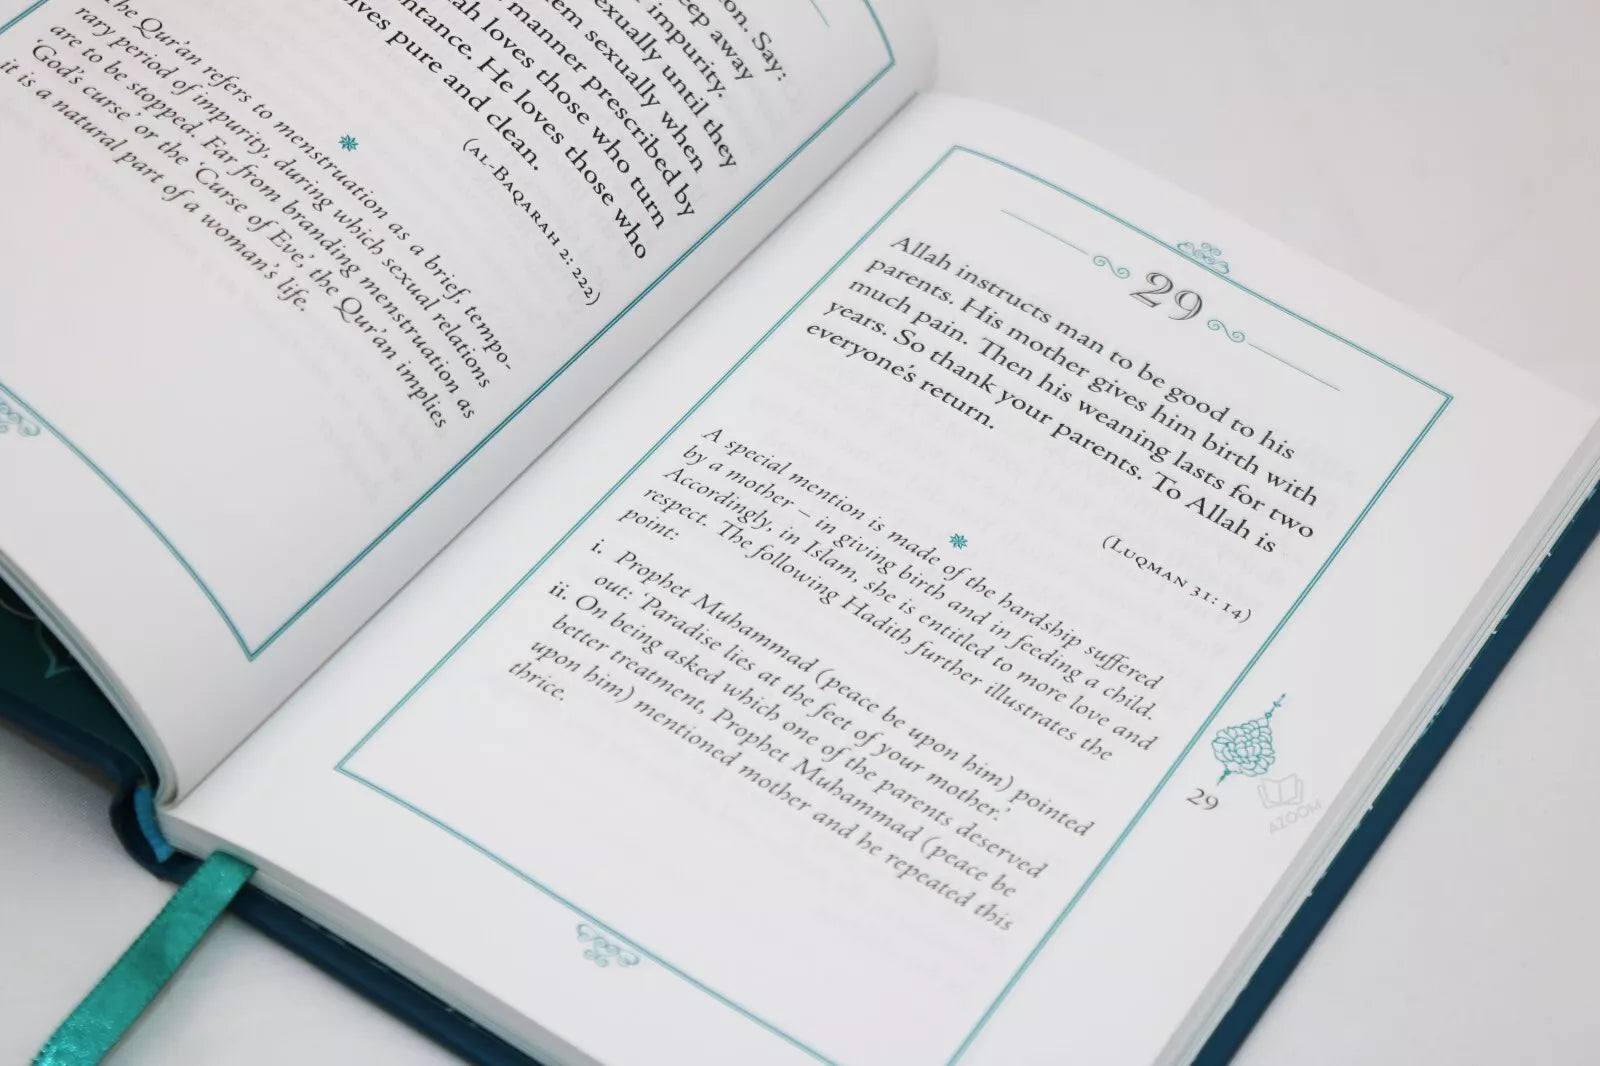 on. Say:
eep away
impurity.
exually until they
em sexually when
manner prescribed by
ah loves those who turn
ntance. He loves those who
lves pure and clean.
(AL-BAQARAH 2: 222)
The Qur'an refers to menstruation as a brief, tempo-
rary period of impurity, during which sexual relations
are to be stopped. Far from branding menstruation as
'God's curse' or the 'Curse of Eve', the Qur'an implies
it is a natural part of a woman's life.
29
Allah instructs man to be good to his
parents. His mother gives him birth with
much pain. Then his weaning lasts for two
years. So thank your parents. To Allah is
everyone's return.
(LUQMAN 31: 14)
A special mention is made of the hardship suffered
by a mother – in giving birth and in feeding a child.
Accordingly, in Islam, she is entitled to more love and
respect. The following Hadith further illustrates the
point:
i. Prophet Muhammad (peace be upon him) pointed
out: 'Paradise lies at the feet of your mother.'
ii. On being asked which one of the parents deserved
better treatment, Prophet Muhammad (peace be
upon him) mentioned mother and he repeated this
thrice.
29
AZOOM